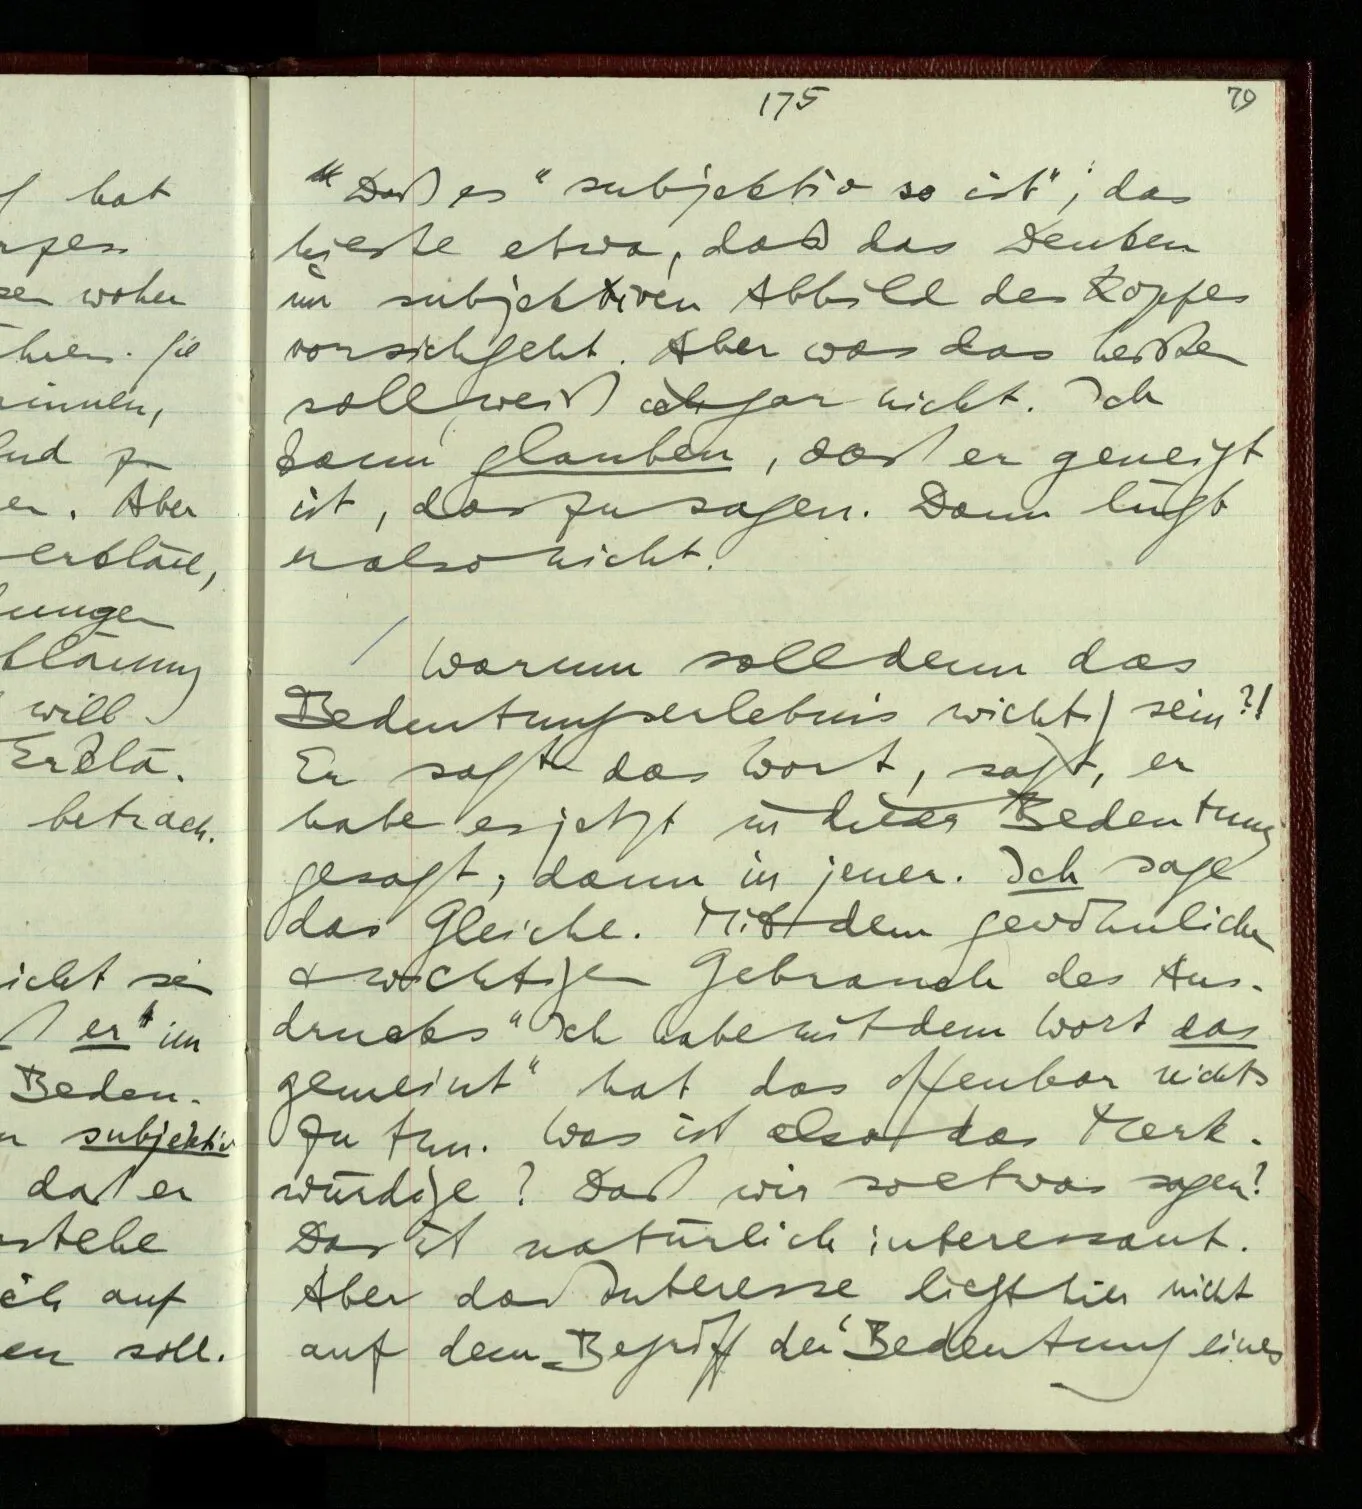 175
79
f hat
rpes
sen woher
hren. Sie
innen,
und zu
en. Aber
erklärt,
ungen
klärung
will
Erklä-
betrach-
icht sei
ß er" im
Bedeu-
n subjektiv
daß er
stehe
ich auf
en soll.
"Daß es "subjektiv so ist", das
hieße etwa, daß das Denken
im subjektiven Abbild des Kopfes
vorsichgeht. Aber was das heißen
soll weiß ich gar nicht. Ich
kann glauben, daß er geneigt
ist, das zu sagen. Dann lügt
er also nicht.
/ Warum soll denn das
Bedeutungserlebnis wichtig sein?!
Er sagt das Wort, sagt, er
habe es jetzt in dieser Bedeutung
gesagt; dann in jener. Ich sage
das Gleiche. Mit dem gewöhnlichen
& wichtigen Gebrauch des Aus-
drucks "Ich habe mit dem Wort das
gemeint" hat das offenbar nichts
zu tun. Was ist also das Merk-
würdige? Daß wir so etwas sagen?
Das ist natürlich interessant.
Aber das Interesse liegt hier nicht
auf dem Begriff der 'Bedeutung' eines